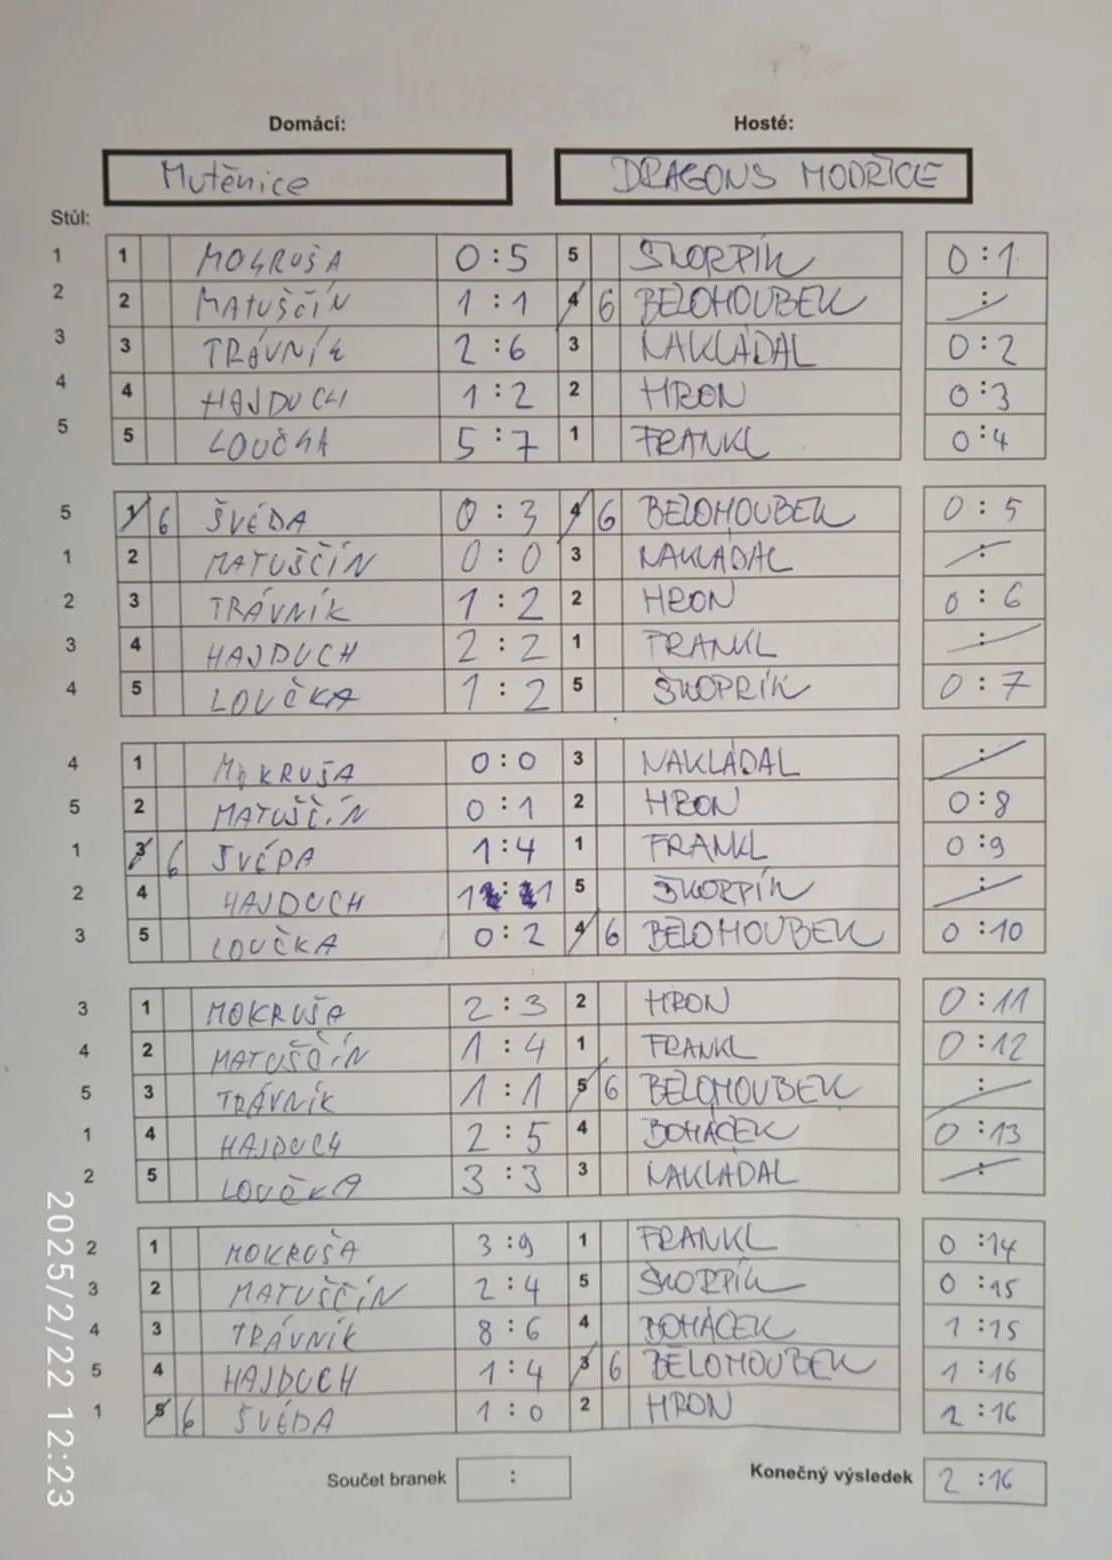 Domácí: Hosté:
Mutěnice DRAGONS MODŘICE
Stůl:
1 1 MOKRUŠA 0:5 5 ŠKORPÍK 0:1
2 2 MATUŠČÍN 1:1 4 6 BELOHOUBEK :
3 3 TRÁVNÍK 2:6 3 NAKLÁDAL 0:2
4 4 HAJDUCH 1:2 2 HRON 0:3
5 5 LOUČKA 5:7 1 FRANKL 0:4
5 1 6 ŠVÉDA 0:3 4 6 BELOHOUBEK 0:5
1 2 MATUŠČÍN 0:0 3 NAKLÁDAL :
2 3 TRÁVNÍK 1:2 2 HRON 0:6
3 4 HAJDUCH 2:2 1 FRANKL :
4 5 LOUČKA 1:2 5 ŠKOPRÍK 0:7
4 1 MOKRUŠA 0:0 3 NAKLÁDAL :
5 2 MATUŠČÍN 0:1 2 HRON 0:8
1 3 6 ŠVÉDA 1:4 1 FRANKL 0:9
2 4 HAJDUCH 1:1 5 ŠKORPÍK :
3 5 LOUČKA 0:2 4 6 BELOHOUBEK 0:10
3 1 MOKRUŠA 2:3 2 HRON 0:11
4 2 MATUŠČÍN 1:4 1 FRANKL 0:12
5 3 TRÁVNÍK 1:1 5 6 BELOHOUBEK :
1 4 HAJDUCH 2:5 4 BOHÁČEK 0:13
2 5 LOUČKA 3:3 3 NAKLÁDAL :
2 1 MOKRUŠA 3:9 1 FRANKL 0:14
3 2 MATUŠČÍN 2:4 5 ŠKORPÍK 0:15
4 3 TRÁVNÍK 8:6 4 BOHÁČEK 1:15
5 4 HAJDUCH 1:4 3 6 BELOHOUBEK 1:16
1 5 6 ŠVÉDA 1:0 2 HRON 2:16
Součet branek : Konečný výsledek 2:16
2025/2/22 12:23